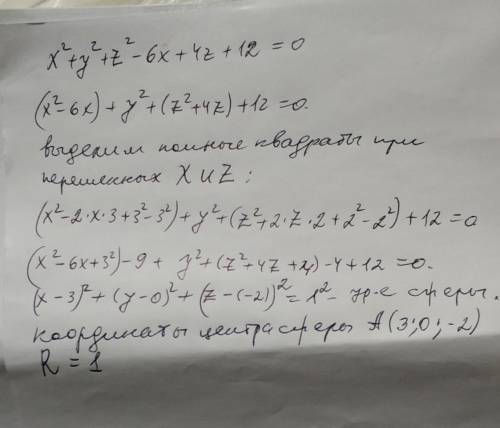 x²+y²+z²-6x+4z+12=0
(x²-6x)+y²+(z²+4z)+12=0.
выделим полные квадраты при
переменных X и Z:
(x²-2·x·3+3²-3²)+y²+(z²+2·z·2+2²-2²)+12=0
(x²-6x+3²)-9+ y²+(z²+4z+4)-4+12=0.
(x-3)²+(y-0)²+(z-(-2))²=1²- ур-е сферы.
координаты центра сферы A(3;0;-2)
R=1